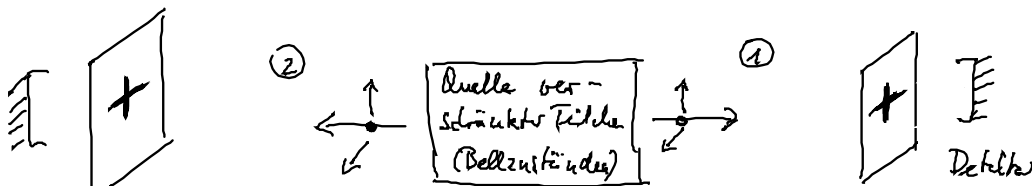 ② ①
Quelle ver-
schränkter Teilchen
(Bellzustände)
Detektor